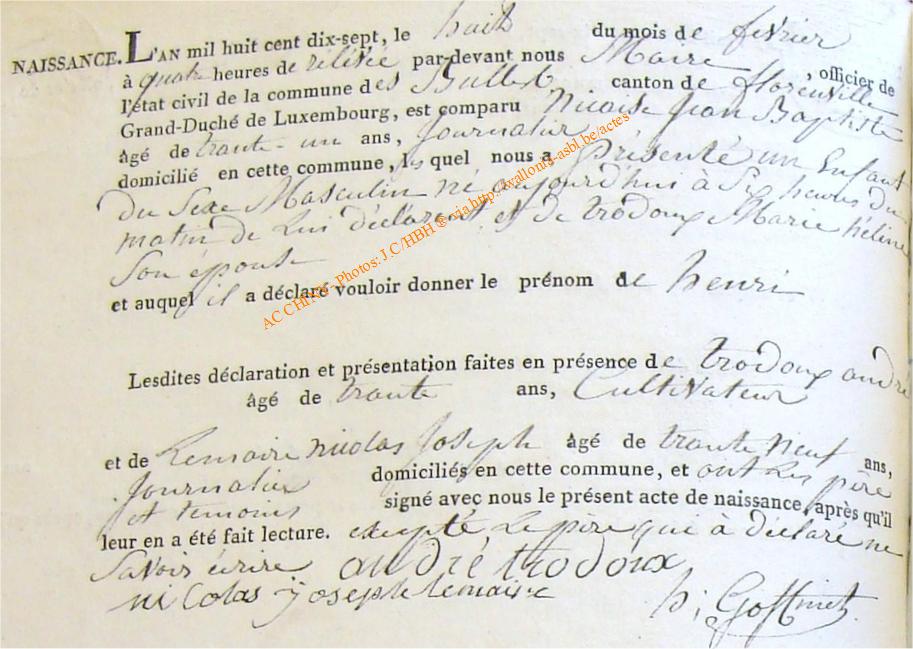 NAISSANCE. L'AN mil huit cent dix-sept, le huit du mois de fevrier
à quatre heures de relévée par-devant nous Maire, officier de
l'état civil de la commune des Bulles canton de florenville
Grand-Duché de Luxembourg, est comparu Nicaise Jean Baptiste
âgé de trante-un ans, Journalier
domicilié en cette commune, les quel nous a présenté un Enfant
du Sexe Masculin né aujourd'hui à Six heures du
matin de Lui déclarent et de trodoux Marie héline
Son épouse
et auquel il a déclaré vouloir donner le prénom de henri
AC CHINY - Photos: J.C/HBH © via http://wallonia-asbl.be/actes
Lesdites déclaration et présentation faites en présence de trodoux andré
âgé de trante ans, Cultivateur
et de Lemaire nicolas Joseph âgé de trante neuf ans,
Journalier domiciliés en cette commune, et ont Les père
et temoins signé avec nous le présent acte de naissance, après qu'il
leur en a été fait lecture. excepté Le père qui à déclaré ne
Savoir écrire andré trodoux
nicolas joseph lemaire
h; Goffinet